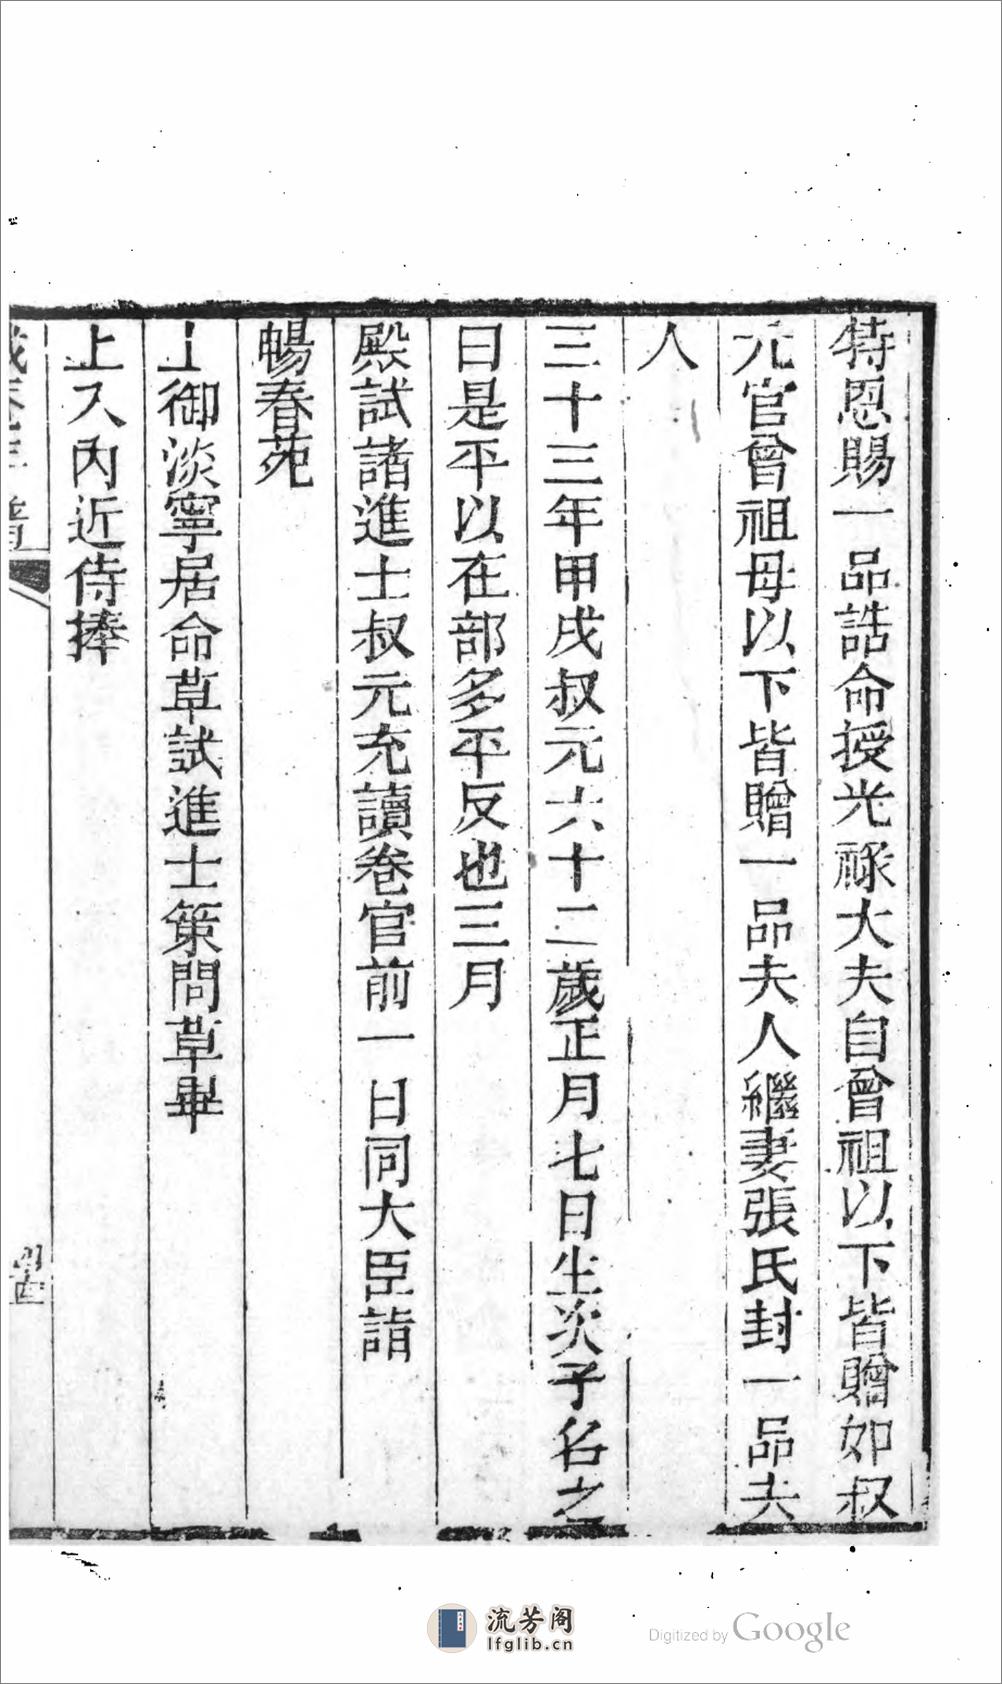 特恩賜一品誥命授光祿大夫自曾祖以下皆贈如叔
元官曾祖母以下皆贈一品夫人繼妻張氏封一品夫
人
三十三年甲戌叔元六十二歲正月七日生次子名之
曰是平以在部多平反也三月
殿試諸進士叔元充讀卷官前一日同大臣詣
暢春苑
上御淡寧居命草試進士策問草畢
上入內近侍捧
流芳阁
lfglib.cn
Digitized by Google